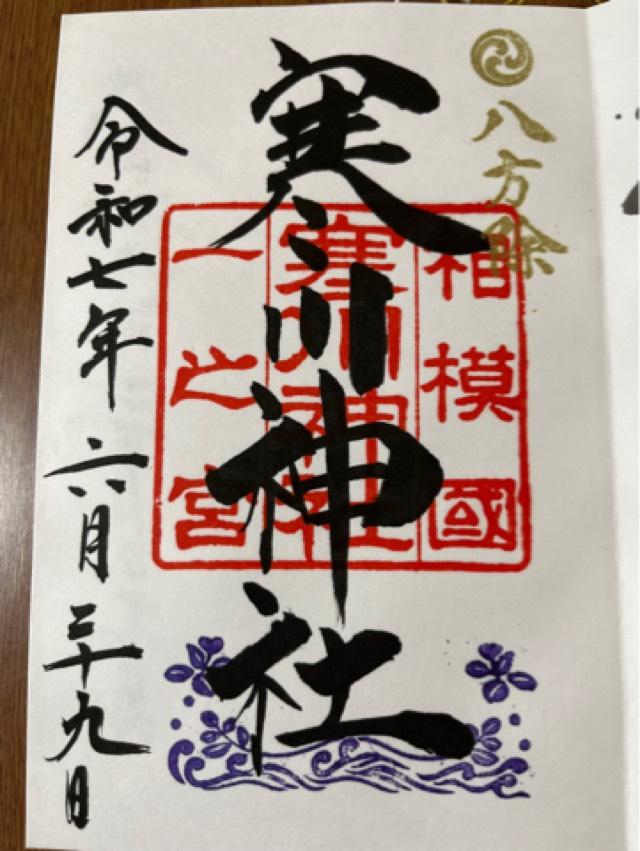 八方除
相模國
寒川神社
一之宮
寒川神社
令和七年六月二十九日